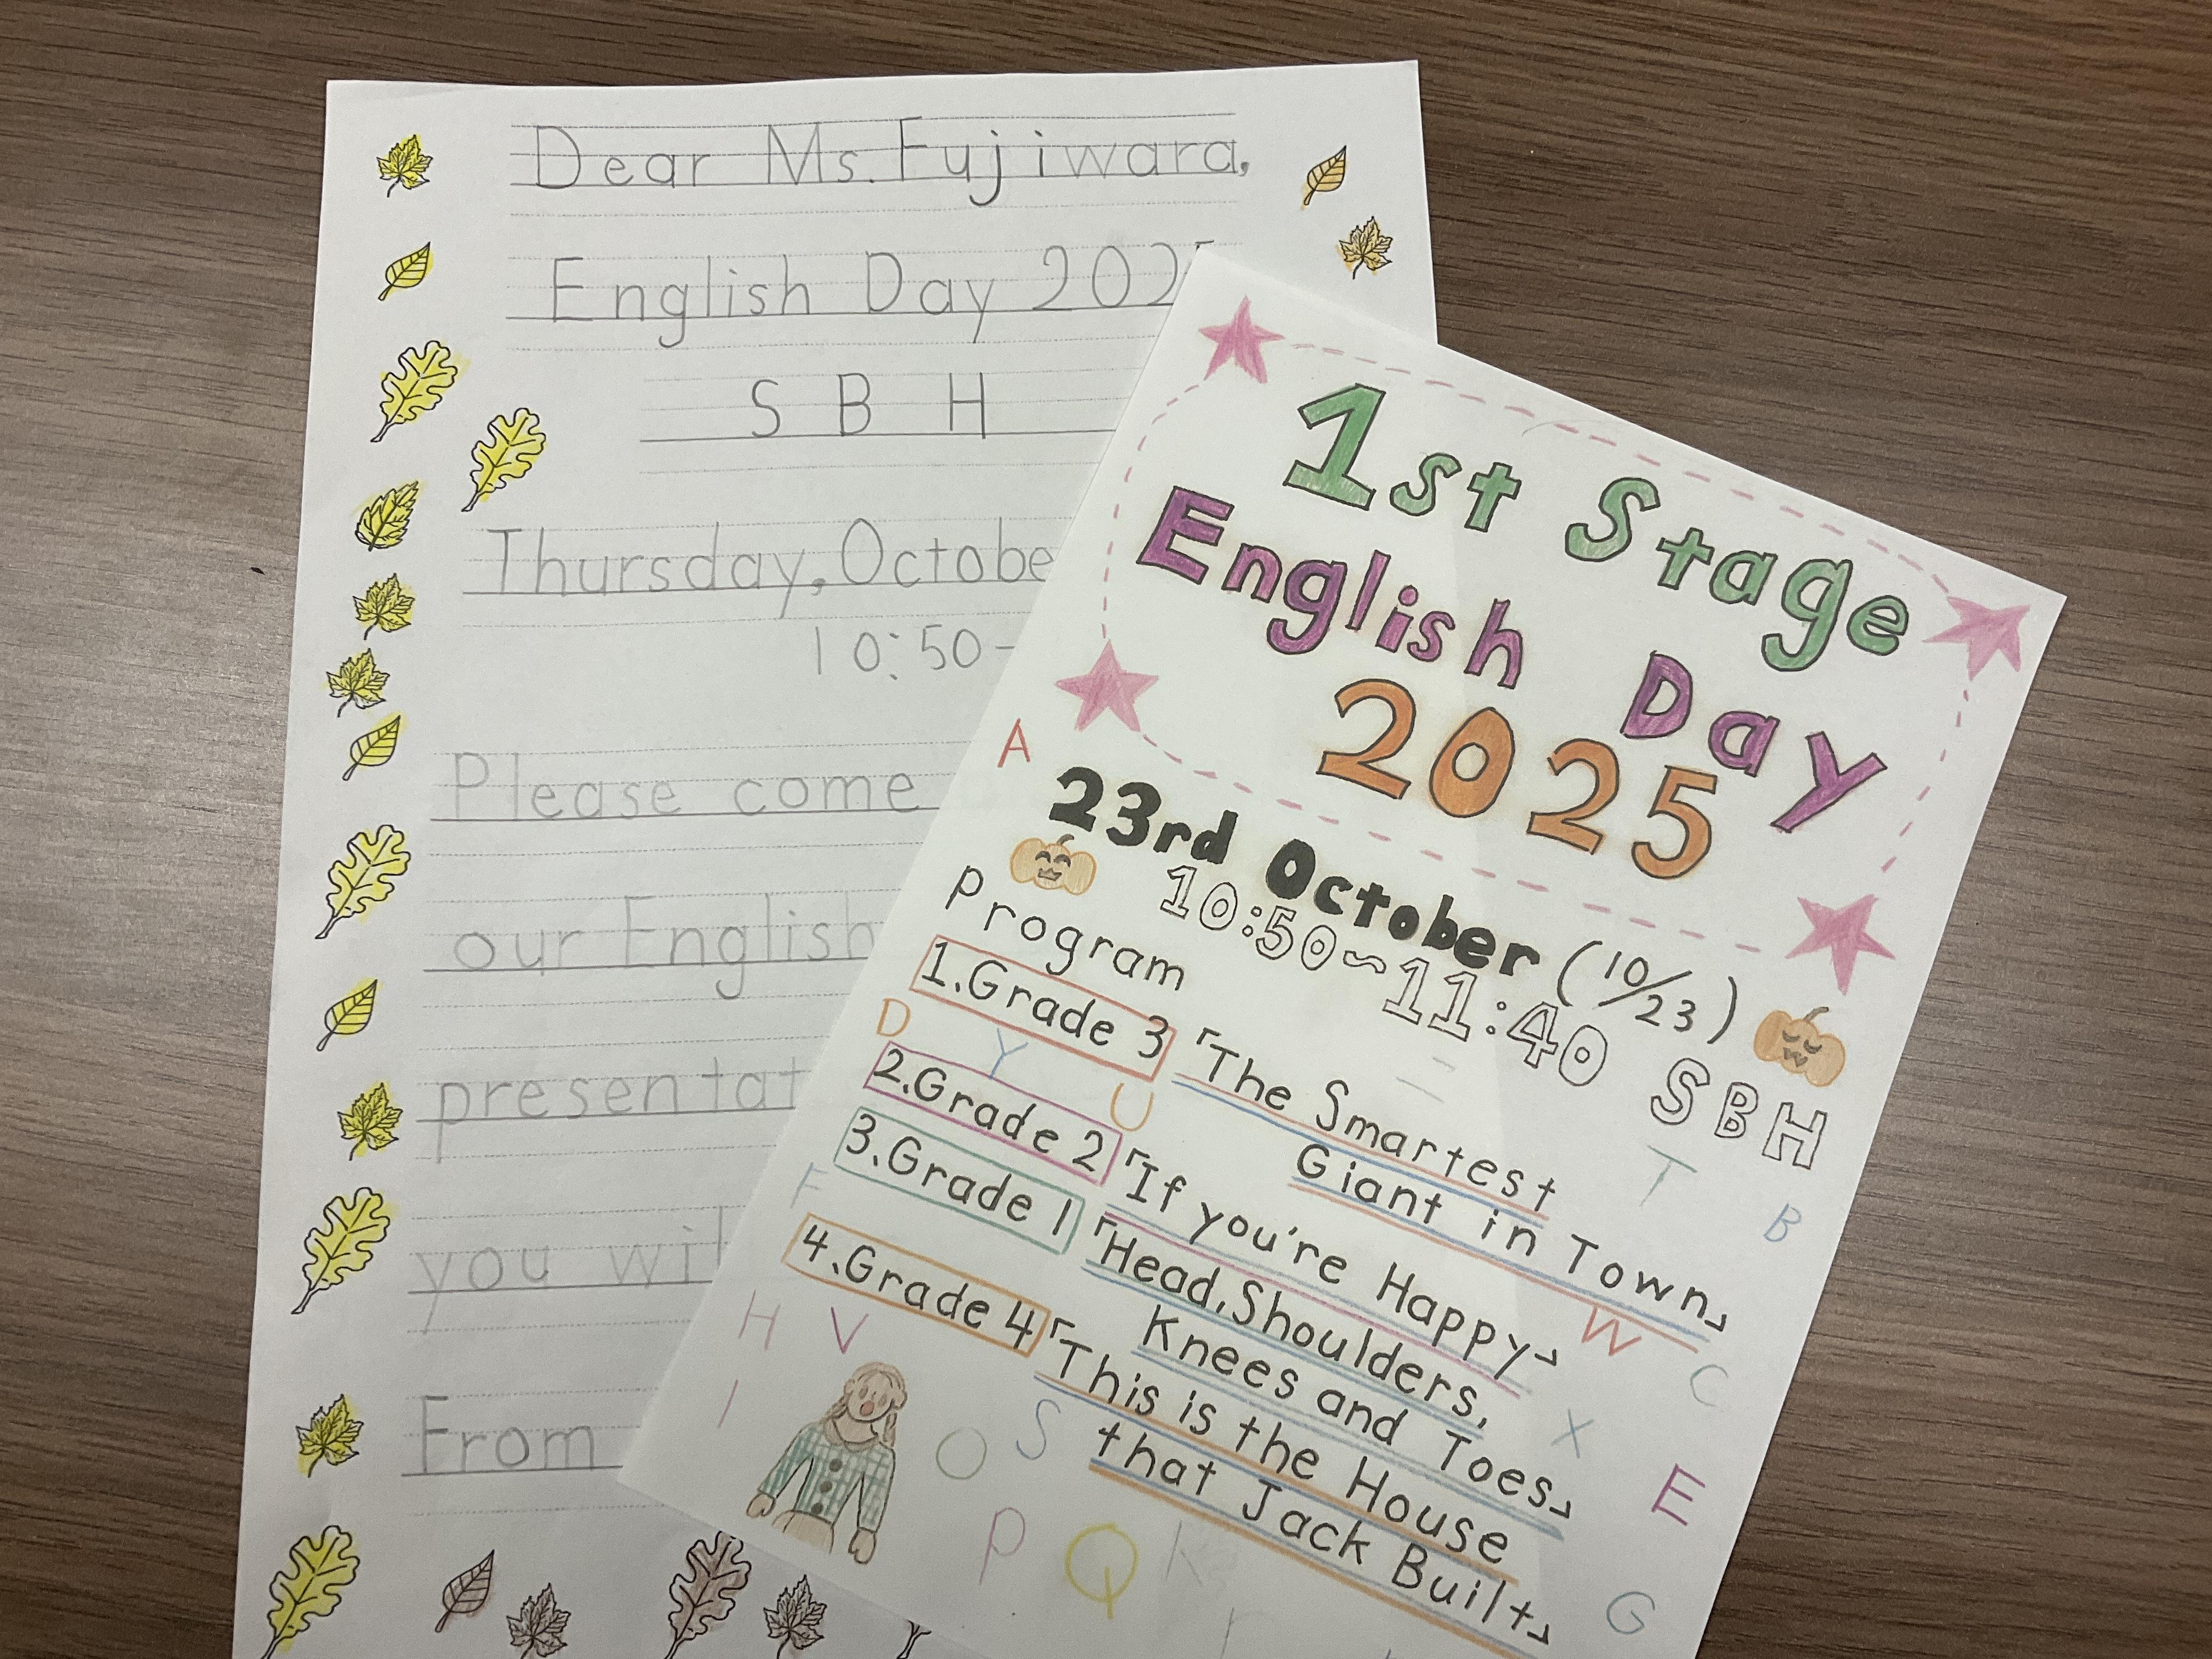 Dear Ms. Fujiwara,
English Day 202
S B H
Thursday, Octobe
10:50-
Please come
our English
presentat
you wil
From
1st Stage
English Day
2025
23rd October (10/23)
10:50~11:40 SBH
Program
1.Grade 3 「The Smartest
Giant in Town」
2.Grade 2 「If you're Happy」
3.Grade 1 「Head, Shoulders,
Knees and Toes」
4.Grade 4 「This is the House
that Jack Built」
A
D
Y
U
T
B
F
W
C
H
V
I
O
S
X
E
P
Q
K
G